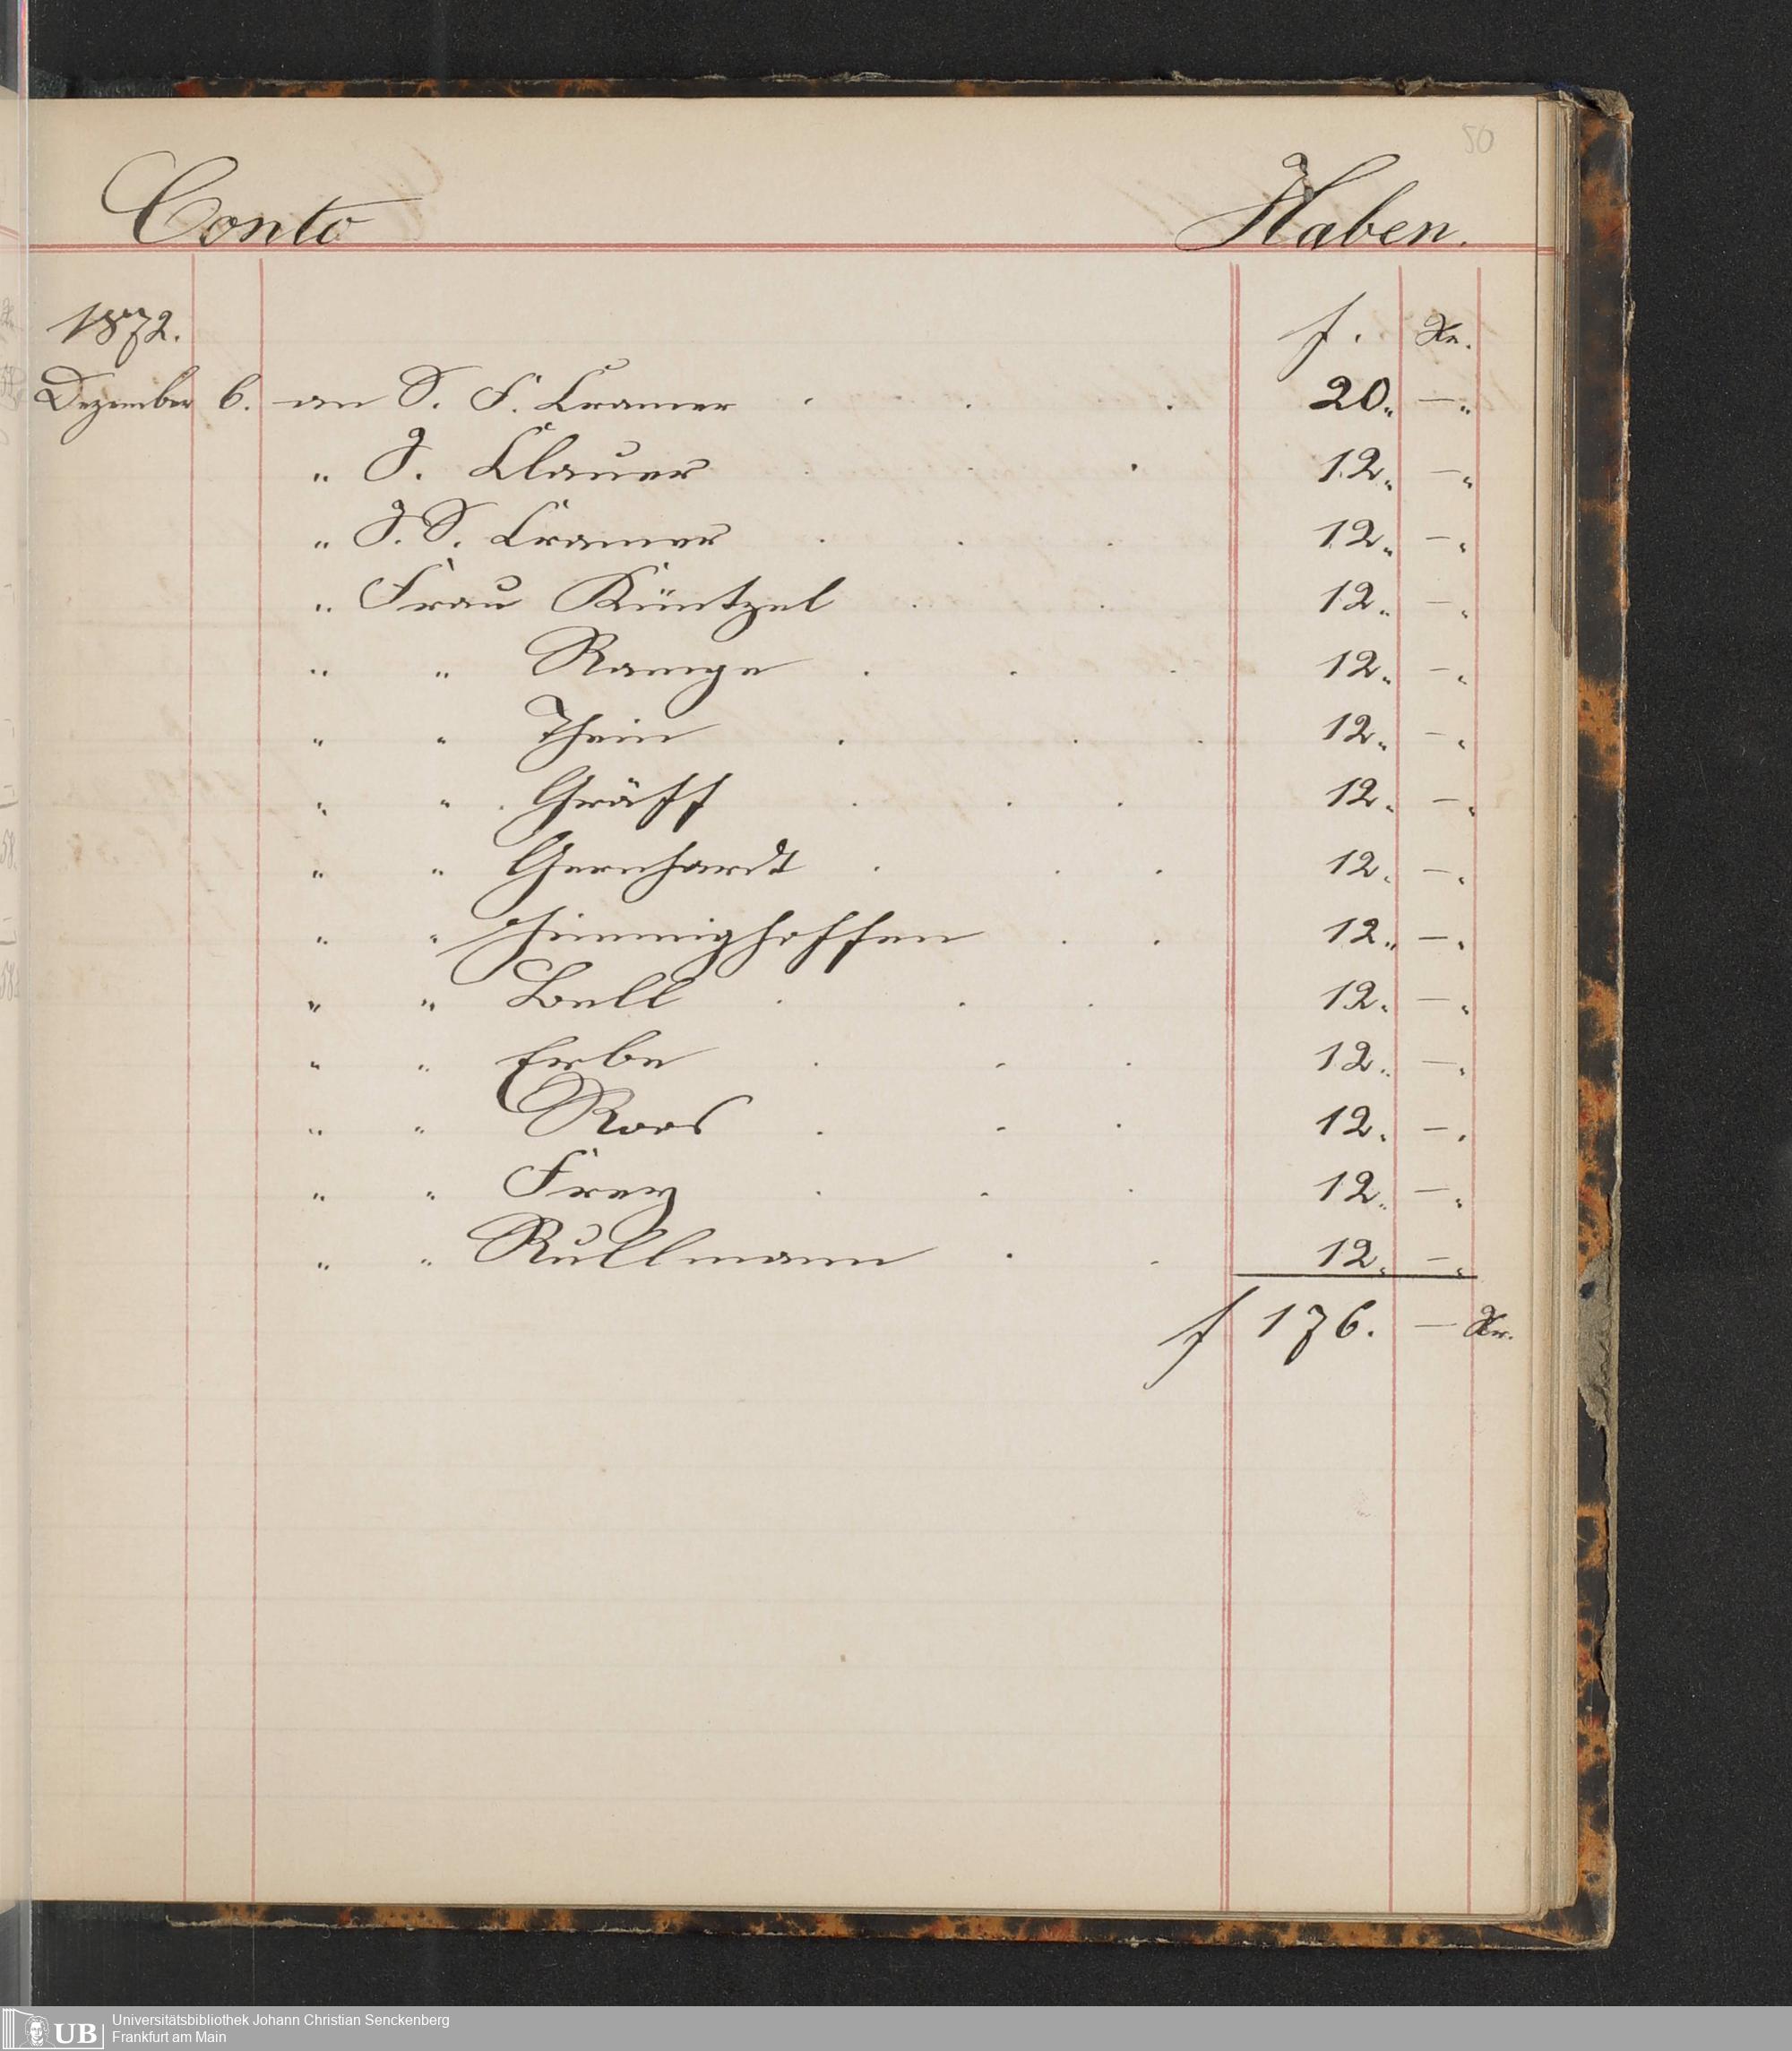 50
Conto Haben.
1872. f. Xr.
Dezember 6. an S. F. Cramer . . . 20„ —„
„ J. Clauer . . . 12„ —„
„ J. S. Cramer . . . 12„ —„
„ Frau Küntzel . . 12„ —„
„ „ Range . . . 12„ —„
„ „ Thein . . . 12„ —„
„ „ Gräff . . . 12„ —„
„ „ Gernhardt . . . 12„ —„
„ „ Himmighoffen . . 12„ —„
„ „ Bell . . . 12„ —„
„ „ Erbe . . . 12„ —„
„ „ Roos . . . 12„ —„
„ „ Frey . . . 12„ —„
„ „ Rullmann . . 12„ —„
f 176. — Xr.
UB Universitätsbibliothek Johann Christian Senckenberg
Frankfurt am Main